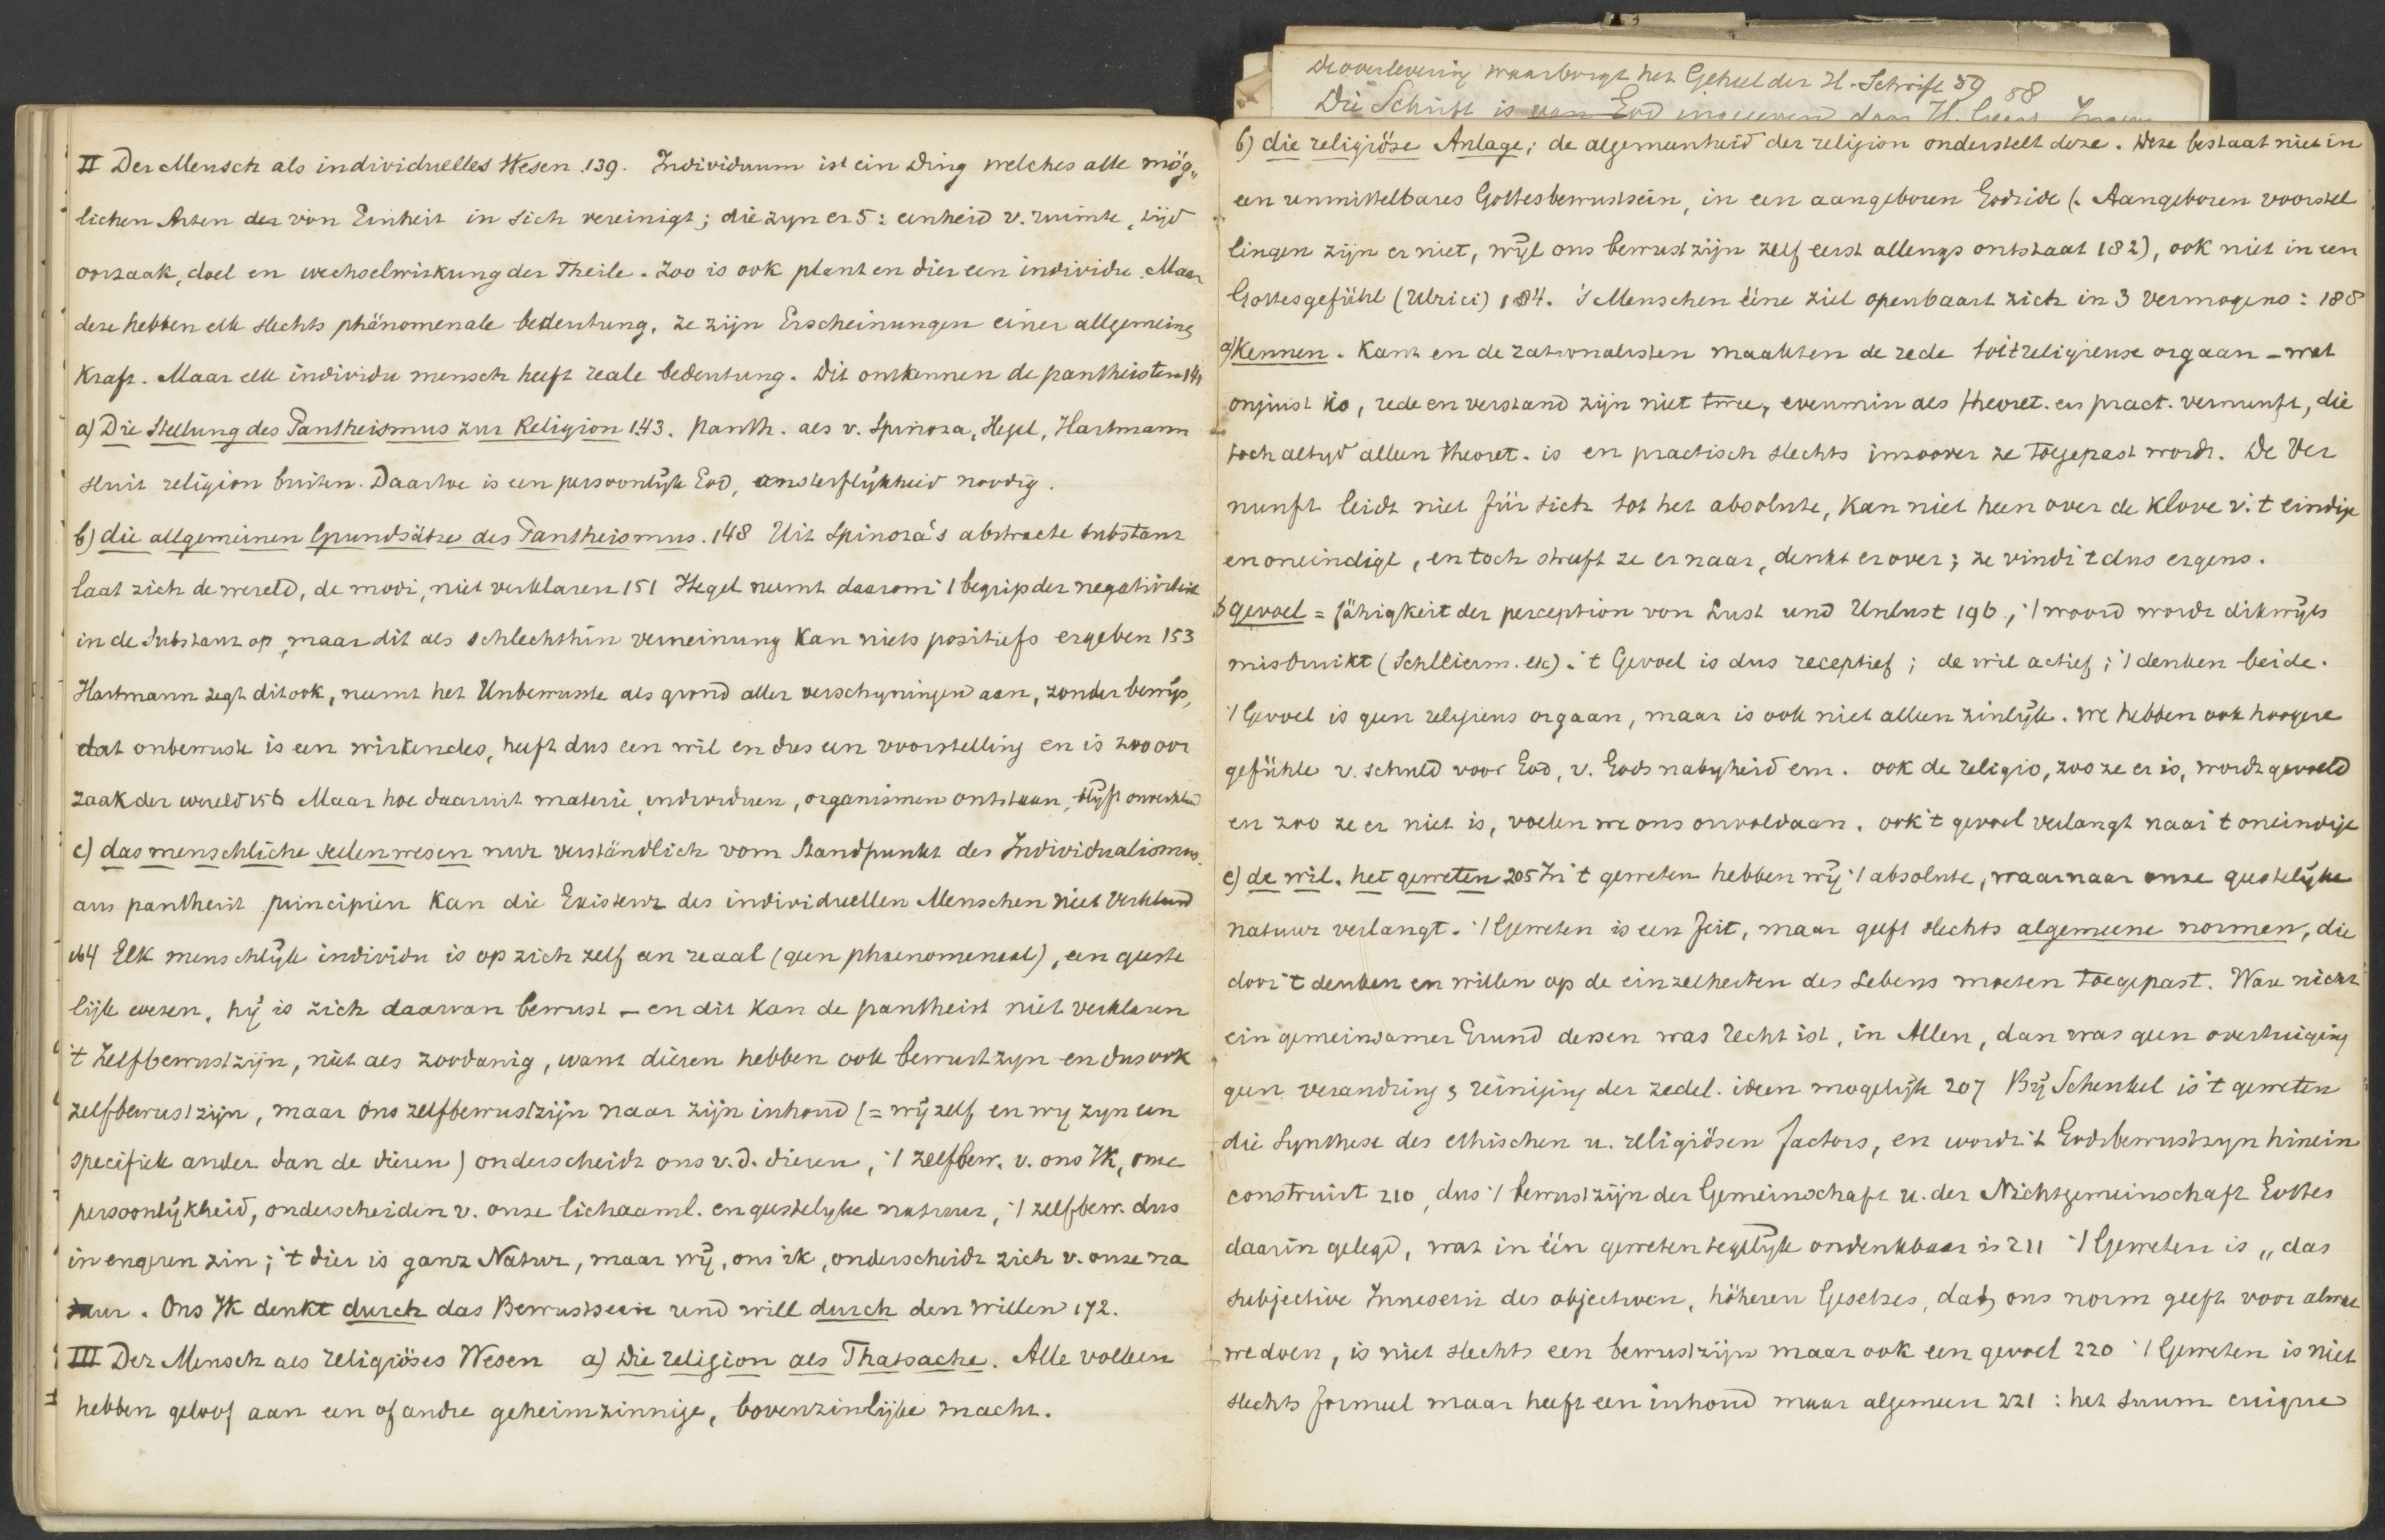 II Der Mensch als individuelles Wesen 139. Individuum ist ein Ding welches alle mög„
lichen Arten der von Einheit in sich vereinigt; die zyn er 5: eenheid v. ruimte, tijd
oorzaak, doel en wechselwirkung der Theile. Zoo is ook plant en dier een individu. Maar
deze hebben elk slechts phänomenale bedeutung, ze zijn Erscheinungen einer allgemeine
Kraft. Maar elk individu mensch heeft reale bedeutung. Dit ontkennen de pantheisten 141
a) Die Stellung des Pantheismus zur Religion 143. Panth. als v. Spinoza, Hegel, Hartmann
sluit religion buiten. Daartoe is een persoonlijk God, onsterflijkheid noodig.
b) die allgemeinen Grundsätze des Pantheismus. 148 Uit Spinoza's abstracte substanz
laat zich de wereld, de modi, niet verklaren 151 Hegel neemt daarom 't begrip der negativiteit
in de Substanz op, maar dit als schlechthin verneinung kan niets positiefs ergeben 153
Hartmann zegt dit ook, neemt het Unbewusste als grond aller verschyningen aan, zonder bewijs,
dat onbewuste is een wirkendes, heeft dus een wil en dus een voorstelling en is zoo oor
zaak der wereld 156 Maar hoe daaruit materie, individuen, organismen ontstaan, blijft onverklaard
c) das menschliche seelenwesen nur verständlich vom Standpunkt des Individualismus.
aus pantheist. principien kan die Existenz des individuellen Menschen niet verklaard
164 Elk menschlijk individu is op zich zelf een reaal (geen phaenomenaal), een geeste
lijk wezen, hij is zich daarvan bewust – en dit kan de pantheist niet verklaren
't Zelfbewustzijn, niet als zoodanig, want dieren hebben ook bewustzyn en dus ook
zelfbewustzijn, maar ons zelfbewustzijn naar zijn inhoud (= wij zelf en wy zyn een
specifiek ander dan de dieren) onderscheidt ons v. d. dieren, 't zelfbew. v. ons Ik, onze
persoonlijkheid, onderscheiden v. onze lichaaml. en geestelyke natuur, 't zelfbew. dus
in engeren zin; 't dier is ganz Natur, maar wij, ons ik, onderscheidt zich v. onze na
tuur. Ons Ik denkt durch das Bewustsein und will durch den willen 172.
III Der Mensch als religiöses Wesen a) Die religion als Thatsache. Alle volken
hebben geloof aan een of andre geheimzinnige, bovenzinlijke macht.
De overlevering waarborgt het Geheel der H. Schrift 89 88
Die Schrift is van God ingegeven door H. Geest
b) die religiöse Anlage; de algemeenheid der religion onderstelt deze. Deze bestaat niet in
een unmittelbares Gottesbewustsein, in een aangeboren Godside (. Aangeboren voorstel
lingen zijn er niet, wijl ons bewustzijn zelf eerst allengs ontstaat 182), ook niet in een
Gottesgefühl (Ulrici) 184. 's Menschen ééne ziel openbaart zich in 3 vermogens: 188
a) Kennen. Kant en de rationalisten maakten de rede tot religieuse orgaan – wat
onjuist is, rede en verstand zijn niet twee, evenmin als theoret. en pract. vernunft, die
toch altyd alleen theoret. is en practisch slechts inzoover ze toegepast wordt. De Ver
nunft leidt niet für sich tot het absolute, kan niet heen over de klove v. 't eindige
en oneindige, en toch streeft ze er naar, denkt er over; ze vindt 't dus ergens.
b gevoel = fähigkeit der perception von Lust und Unlust 196, 't woord wordt dikwijls
misbruikt (Schleierm. etc). 't Gevoel is dus receptief; de wil actief; 't denken beide.
't Gevoel is geen religieus orgaan, maar is ook niet alleen zinlijk. We hebben ook hoogere
gefühle v. schuld voor God, v. Gods nabyheid enz. ook de religio, zoo ze er is, wordt gevoeld
en zoo ze er niet is, voelen we ons onvoldaan. ook 't gevoel verlangt naar 't oneindige
c) de wil. het geweten 205 In 't geweten hebben wij 't absolute, waarnaar onze geestelijke
natuur verlangt. 't Geweten is een feit, maar geeft slechts algemeene normen, die
door 't denken en willen op de einzelheiten des Lebens moeten toegepast. Ware nicht
ein gemeinsamer Grund dessen was recht ist, in Allen, dan was geen overtuiging
geen verandring & reiniging der zedel. ideen mogelijk 207 Bij Schenkel is 't geweten
die Synthese des ethischen u. religiösen factors, en wordt 't Godsbewustzyn hinein
construirt 210, dus 't bewustzijn der Gemeinschaft u. der Nichtgemeinschaft Gottes
daarin gelegd, wat in één geweten tegelijk ondenkbaar is 211 't Geweten is „das
subjective Innesein des objectiven, höheren Gesetzes, dat ons norm geeft voor alwat
we doen, is niet slechts een bewustzijn maar ook een gevoel 220 't Geweten is niet
slechts formeel maar heeft een inhoud maar algemeen 221: het suum cuique